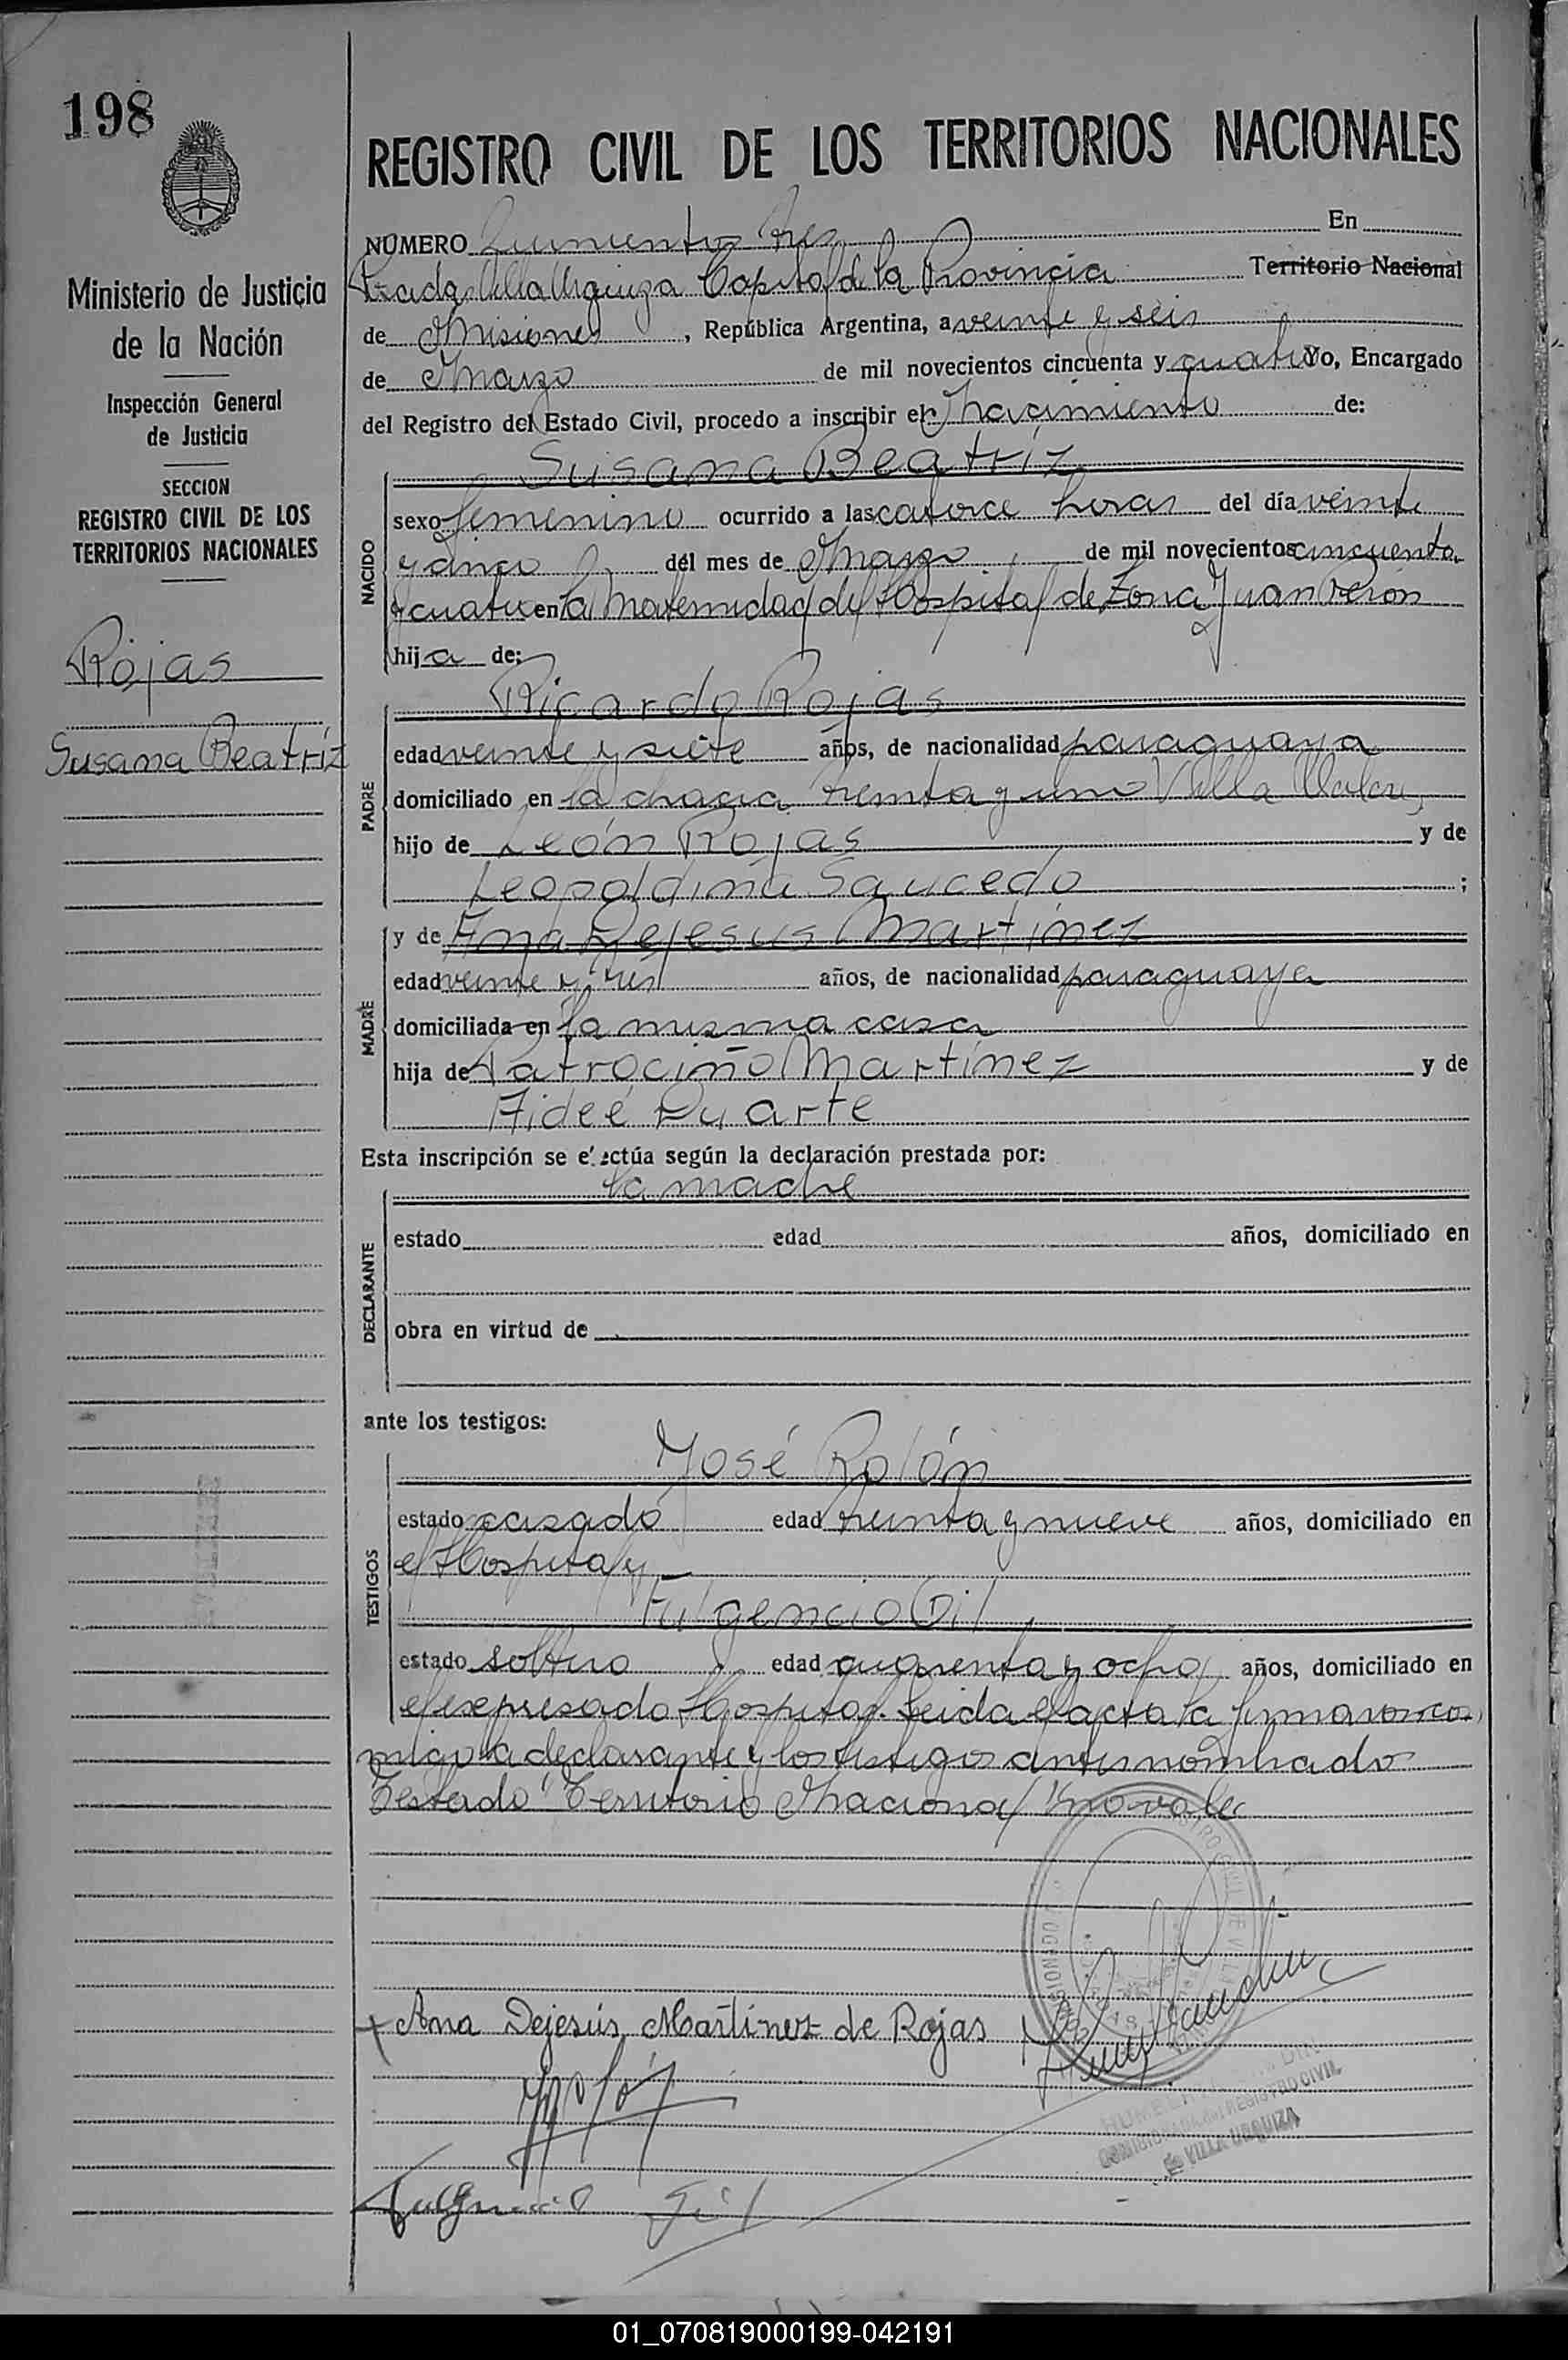 198
REGISTRO CIVIL DE LOS TERRITORIOS NACIONALES
Ministerio de Justicia
de la Nación
Inspección General
de Justicia
SECCION
REGISTRO CIVIL DE LOS
TERRITORIOS NACIONALES
Rojas
Susana Beatriz
NÚMERO Quinientos tres En
Villa Urquiza Capital de la Provincia Territorio Nacional
de Misiones, República Argentina, a veinte y seis
de Marzo de mil novecientos cincuenta y cuatro Yo, Encargado
del Registro del Estado Civil, procedo a inscribir el Nacimiento de:
Susana Beatríz
NACIDO
sexo femenino ocurrido a las catorce horas del día veinte
y cinco del mes de Marzo de mil novecientos cincuenta
y cuatro en la Maternidad del Hospital de Zona Juan Perón
hija de:
Ricardo Rojas
PADRE
edad veinte y siete años, de nacionalidad paraguaya
domiciliado en la chacra treinta y uno Villa
hijo de León Rojas y de
Leopoldina Saucedo ;
y de Ana Dejesús Martínez
MADRE
edad veinte y tres años, de nacionalidad paraguaya
domiciliada en la misma casa
hija de Patrociño Martínez y de
Aideé Duarte
Esta inscripción se efectúa según la declaración prestada por:
la madre
DECLARANTE
estado edad años, domiciliado en
obra en virtud de
ante los testigos:
José Rolón
TESTIGOS
estado casado edad treinta y nueve años, domiciliado en
el Hospital y
Fulgencio Gil
estado soltero edad cuarenta y ocho años, domiciliado en
el expresado Hospital. Leida el acta la firmaron con
migo la declarante y los testigos antes nombrados
Testado "Territorio Nacional" no vale
Ana Dejesús Martinez de Rojas
Fulgencio Gil
REGISTRO CIVIL
VILLA URQUIZA
01_070819000199-042191